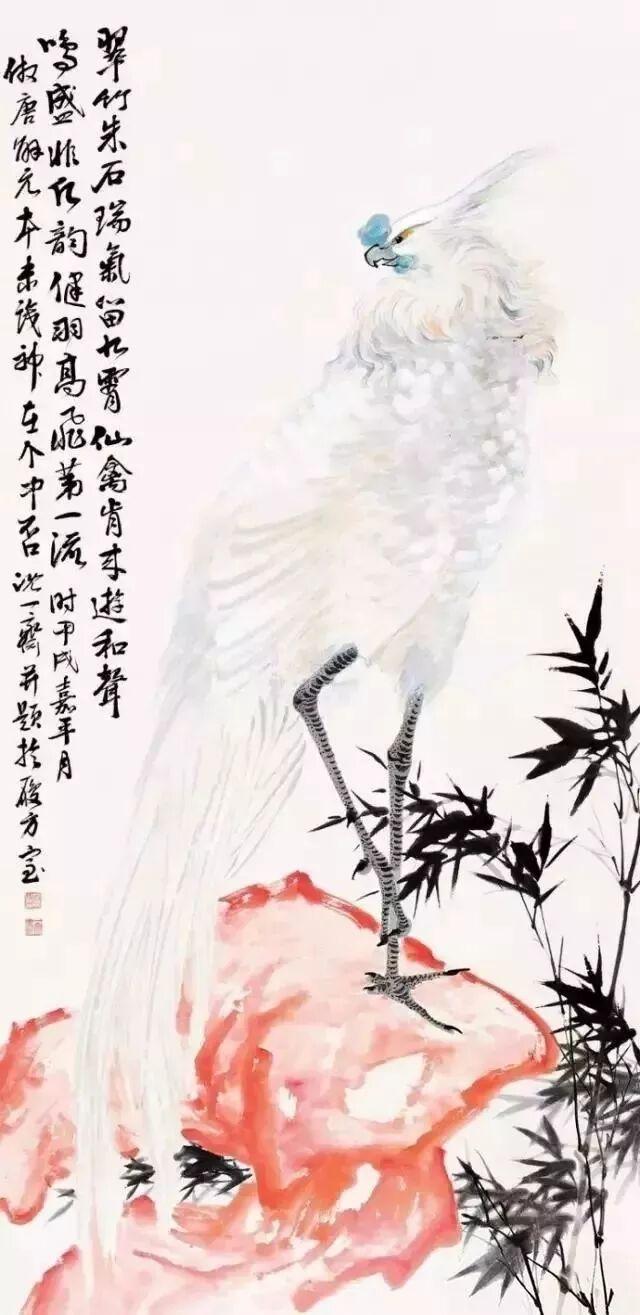 翠竹朱石瑞氣留九霄仙禽肯来遊和聲
鳴盛非凡韵健羽髙飛第一流 时甲戌嘉平月
倣唐解元本未識神在个中否 沈一齋并題於方室